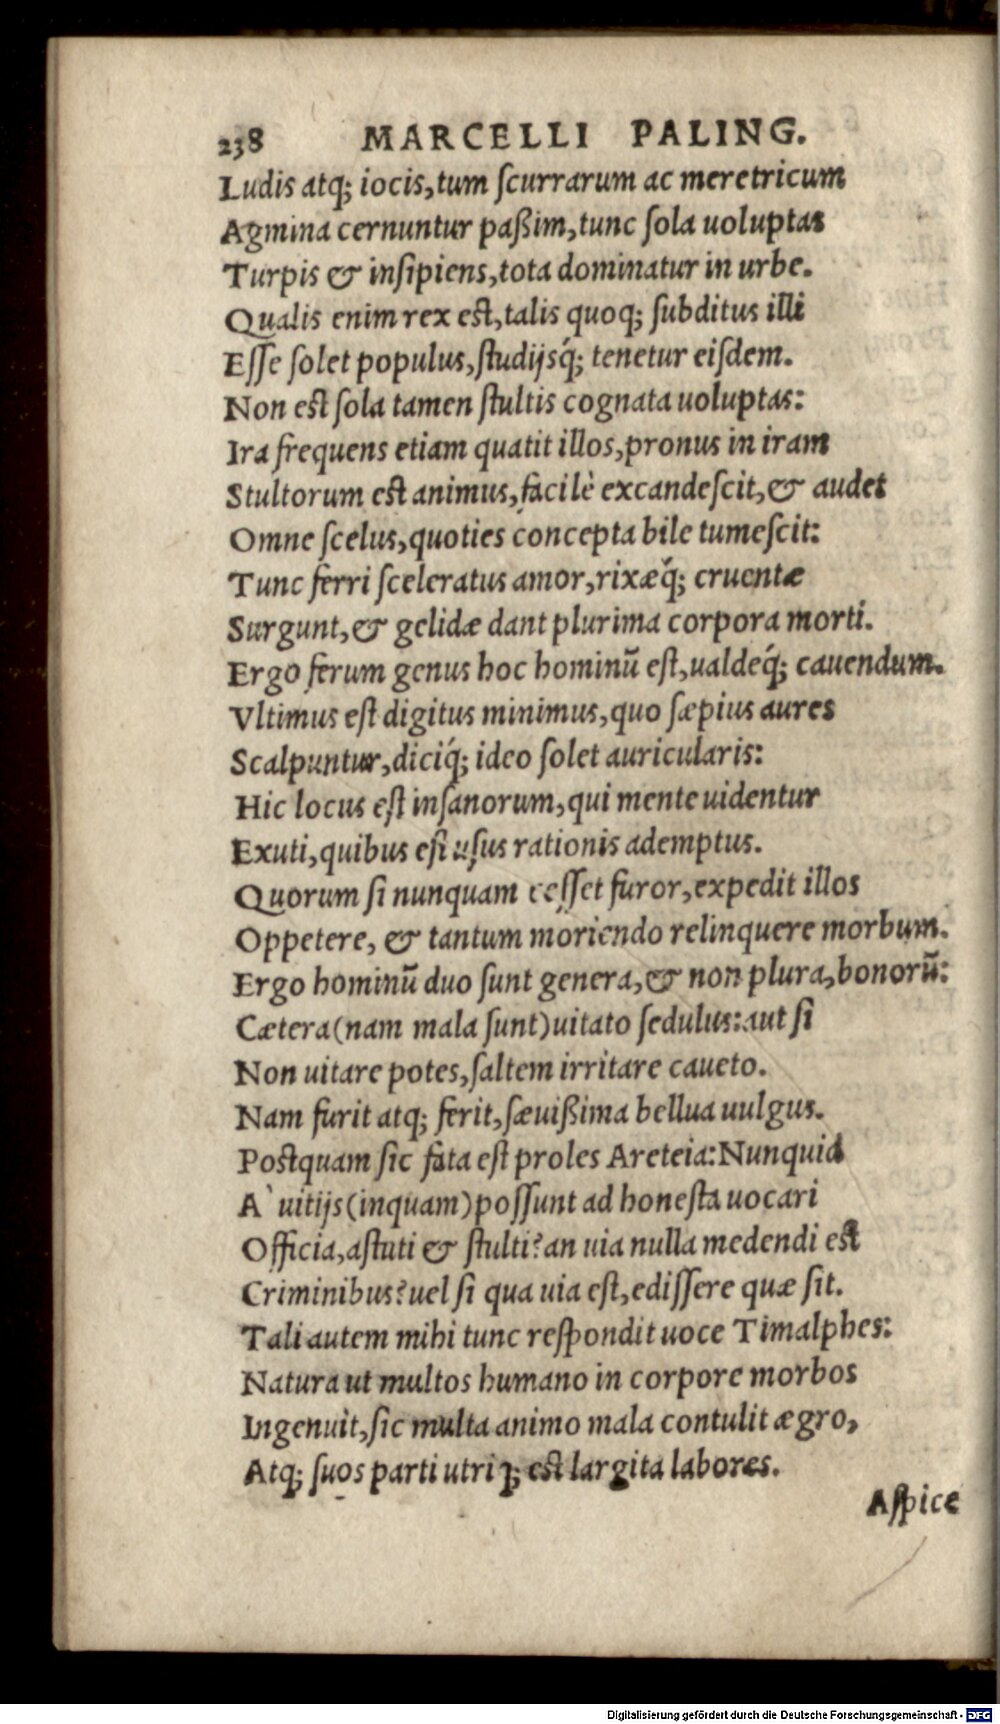 238 MARCELLI PALING.
Ludis atq; iocis, tum ſcurrarum ac meretricum
Agmina cernuntur paßim, tunc ſola uoluptas
Turpis & inſipiens, tota dominatur in urbe.
Qualis enim rex eſt, talis quoq; ſubditus illi
Eſſe ſolet populus, ſtudijsq́; tenetur eiſdem.
Non eſt ſola tamen ſtultis cognata uoluptas:
Ira frequens etiam quatit illos, pronus in iram
Stultorum eſt animus, facilè excandeſcit, & audet
Omne ſcelus, quoties concepta bile tumeſcit:
Tunc ferri ſceleratus amor, rixæq́; cruentæ
Surgunt, & gelidæ dant plurima corpora morti.
Ergo ferum genus hoc hominũ eſt, ualdeq́; cauendum.
Vltimus eſt digitus minimus, quo ſæpius aures
Scalpuntur, diciq́; ideo ſolet auricularis:
Hic locus eſt inſanorum, qui mente uidentur
Exuti, quibus eſt uſus rationis ademptus.
Quorum ſi nunquam ceſſet furor, expedit illos
Oppetere, & tantum moriendo relinquere morbum.
Ergo hominũ duo ſunt genera, & non plura, bonorũ:
Cætera (nam mala ſunt) uitato ſedulus: aut ſi
Non uitare potes, ſaltem irritare caueto.
Nam furit atq; ferit, ſæuißima bellua uulgus.
Poſtquam ſic fata eſt proles Areteia: Nunquid
A` uitijs (inquam) poſſunt ad honeſta uocari
Officia, aſtuti & ſtulti? an uia nulla medendi eſt
Criminibus? uel ſi qua uia eſt, ediſſere quæ ſit.
Tali autem mihi tunc reſpondit uoce Timalphes:
Natura ut multos humano in corpore morbos
Ingenuit, ſic multa animo mala contulit ægro,
Atq; ſuos parti utriq; eſt largita labores.
Aſpice
Digitalisierung gefördert durch die Deutsche Forschungsgemeinschaft - DFG